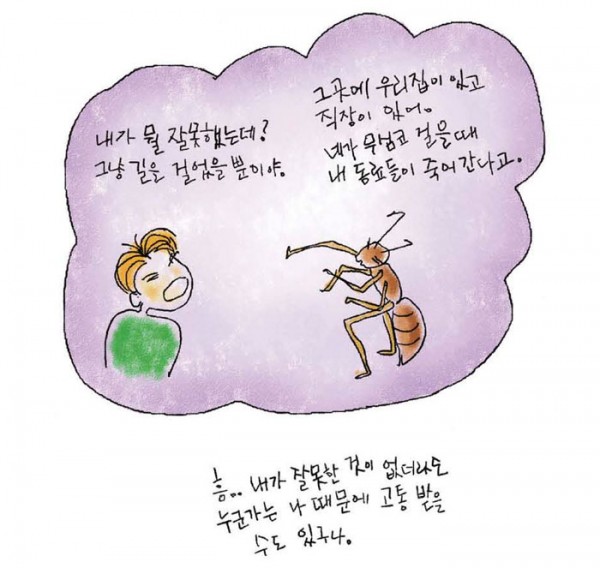 내가 뭘 잘못했는데?
그냥 길을 걸었을 뿐이야.
그곳에 우리집이 있고
직장이 있어.
네가 무심코 걸을때
내 동료들이 죽어간다고.
흠.. 내가 잘못한 것이 없더라도
누군가는 나 때문에 고통 받을
수도 있구나.